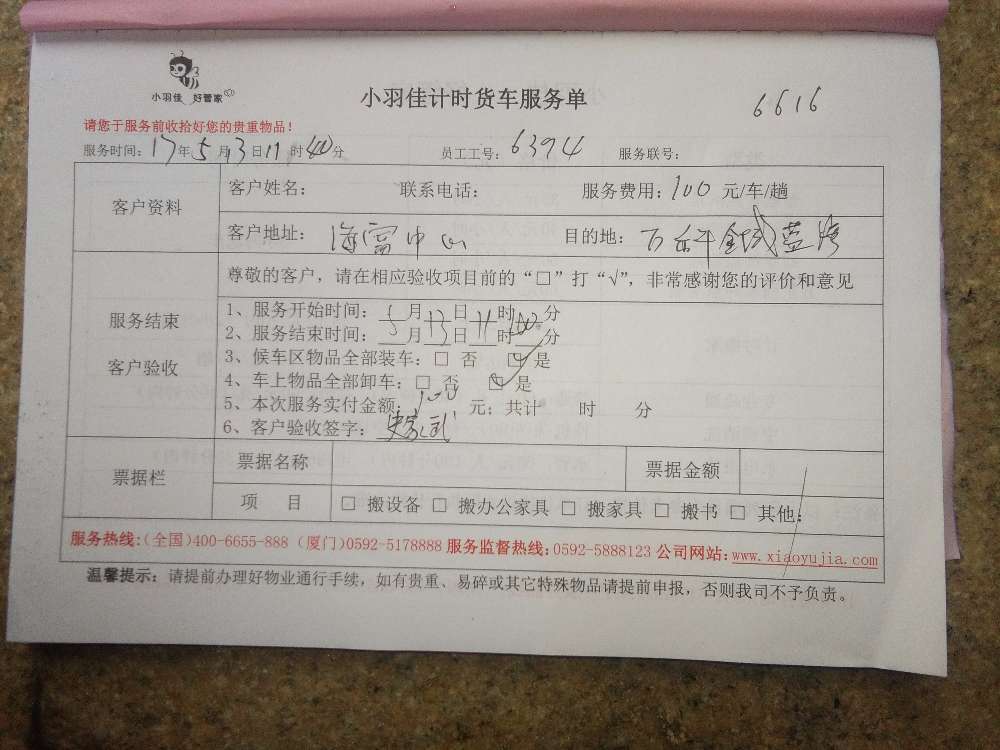 小羽佳 好管家
小羽佳计时货车服务单
6616
请您于服务前收拾好您的贵重物品!
服务时间: 17年5月13日11时40分 员工工号: 6394 服务联号:
客户资料
客户姓名: 联系电话: 服务费用: 100 元/车/趟
客户地址: 海富中心 目的地: 金域蓝湾
尊敬的客户，请在相应验收项目前的“□”打“√”，非常感谢您的评价和意见
服务结束
客户验收
1、服务开始时间: 5月13日11时 分
2、服务结束时间: 5月13日11时 分
3、候车区物品全部装车: □ 否 ☑ 是
4、车上物品全部卸车: □ 否 ☑ 是
5、本次服务实付金额: 100 元; 共计 时 分
6、客户验收签字:
票据栏
票据名称 票据金额
项 目 □ 搬设备 □ 搬办公家具 □ 搬家具 □ 搬书 □ 其他:
服务热线:(全国)400-6655-888 (厦门)0592-5178888 服务监督热线: 0592-5888123 公司网站: www.xiaoyujia.com
温馨提示: 请提前办理好物业通行手续，如有贵重、易碎或其它特殊物品请提前申报，否则我司不予负责。